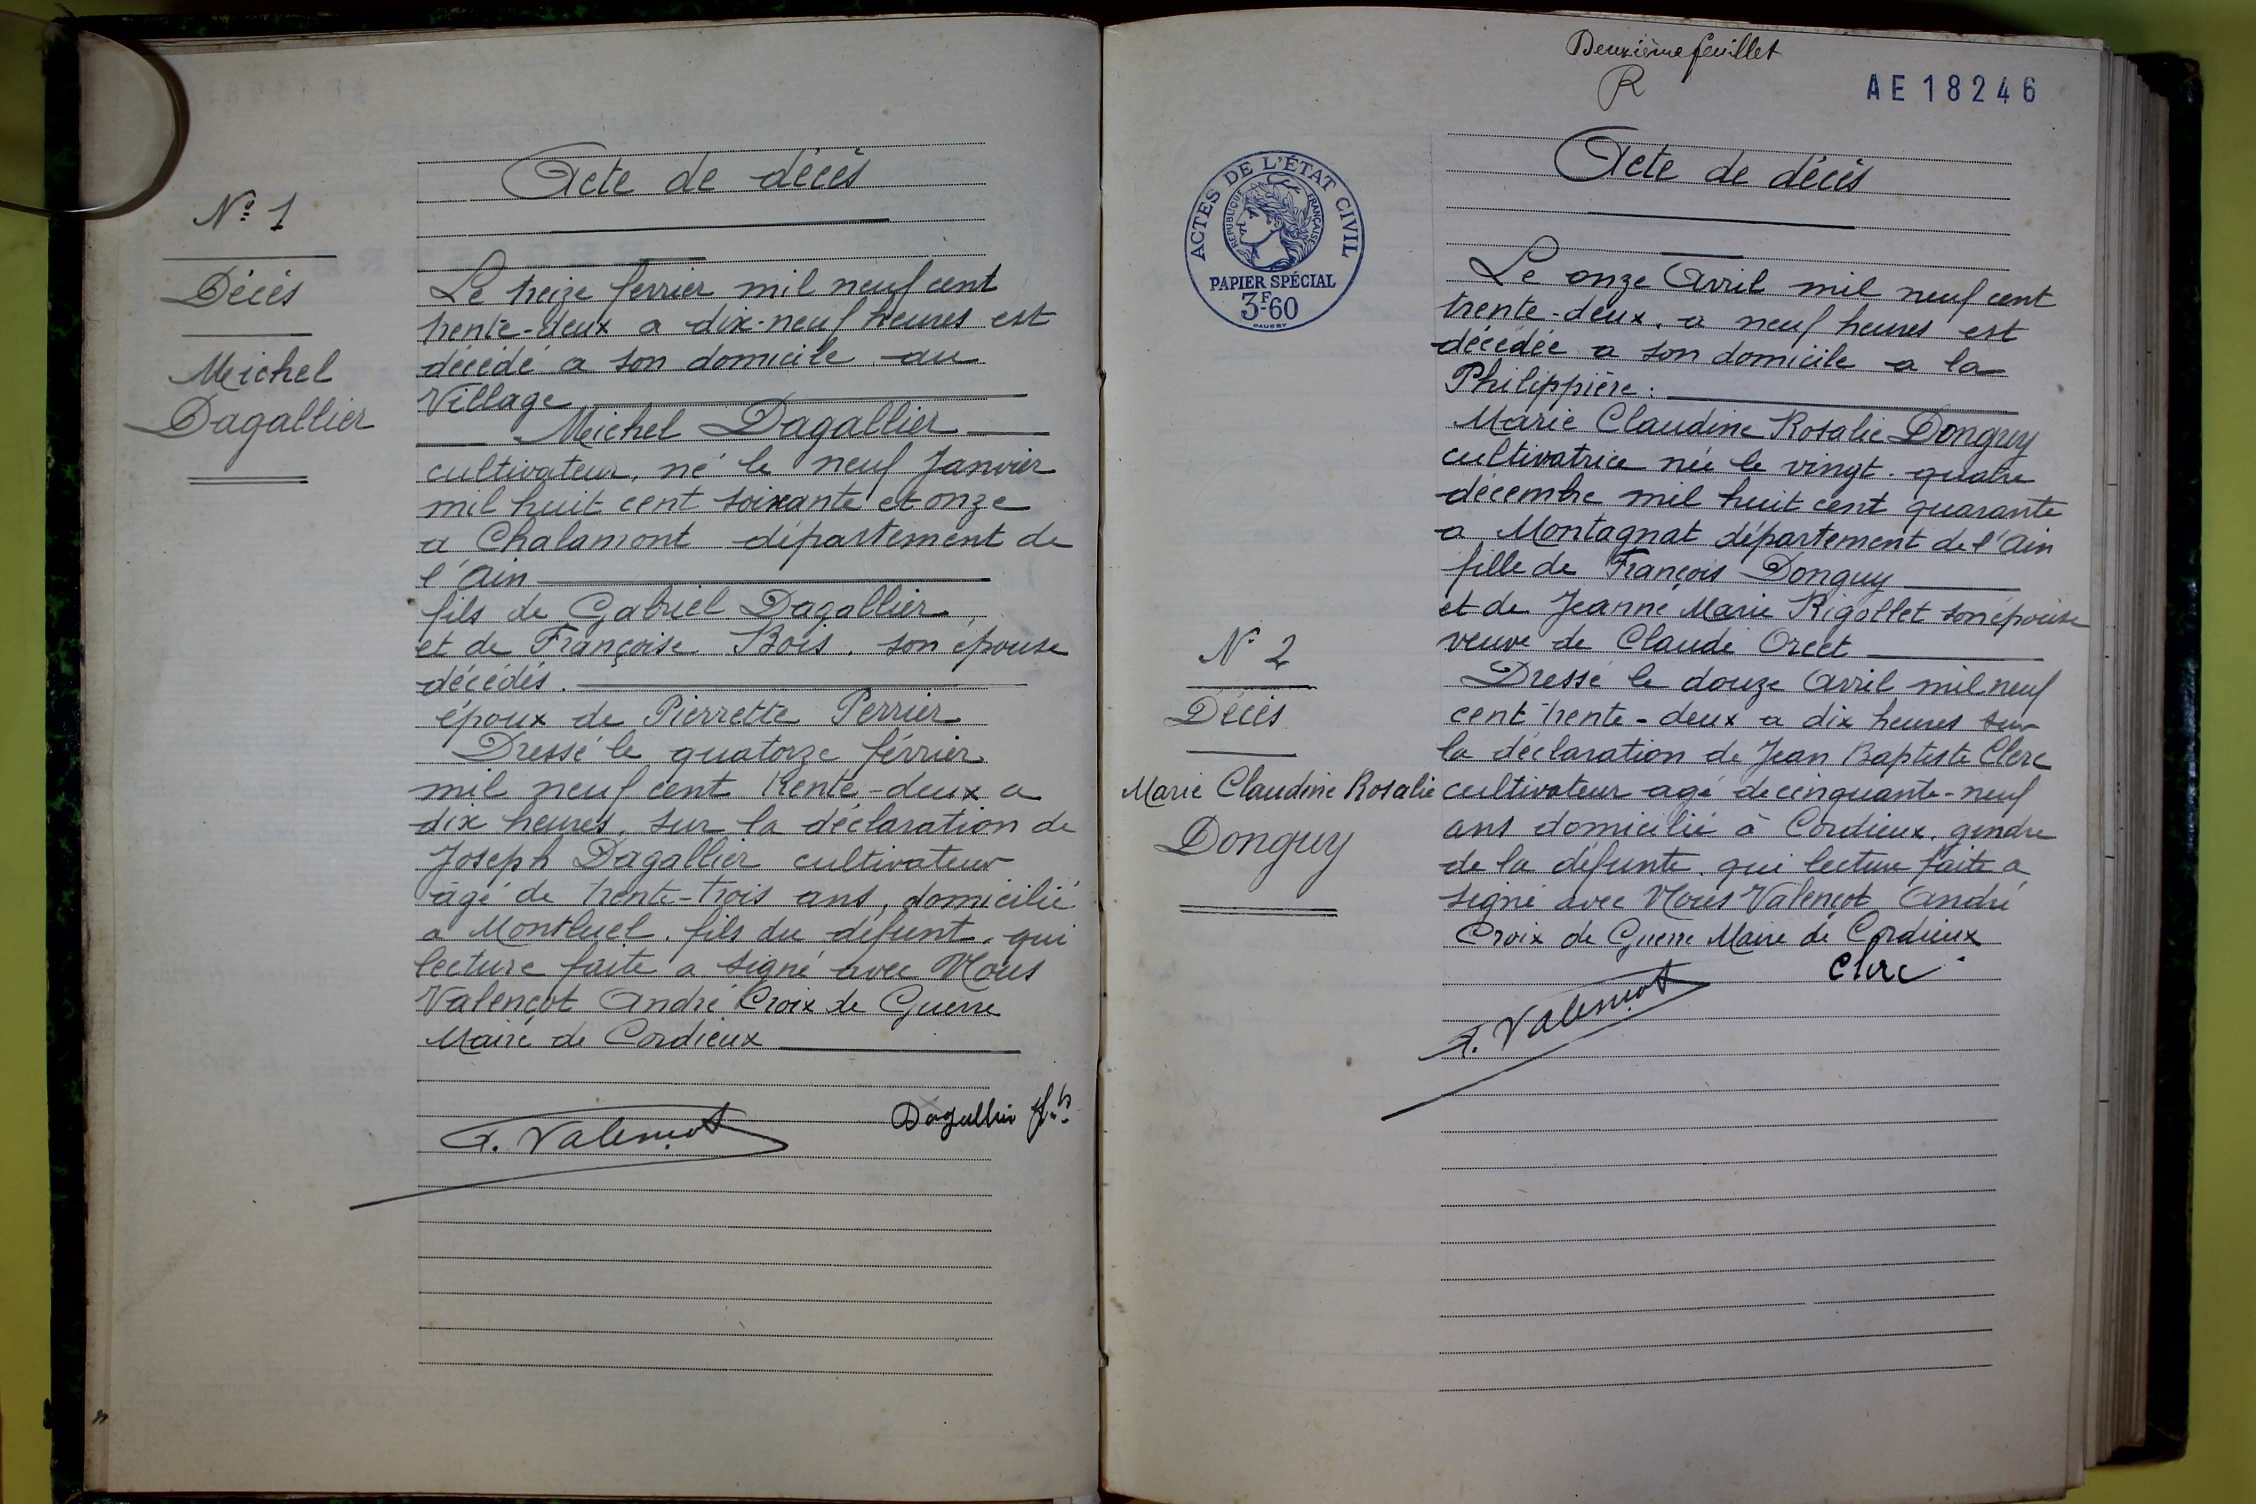 Acte de décès
Nº 1
Décès
Michel
Dagallier
Le treize fevrier mil neuf cent
trente-deux a dix-neuf heures est
décédé a son domicile au
Village
Michel Dagallier
cultivateur, né le neuf Janvier
mil huit cent soixante et onze
a Chalamont département de
l'Ain
fils de Gabriel Dagallier
et de Françoise Bois, son épouse
décédés.
époux de Pierrette Perrier
Dressé le quatorze février
mil neuf cent trente-deux a
dix heures, sur la déclaration de
Joseph Dagallier cultivateur
âgé de trente-trois ans, domicilié
a Montluel, fils du défunt, qui
lecture faite a signé avec Nous
Valençot André Croix de Guerre
Maire de Cordieux
A. Valençot
Dagallier fils
Deuxième feuillet
R
AE 18246
ACTES DE L'ÉTAT CIVIL
RÉPUBLIQUE FRANÇAISE
PAPIER SPÉCIAL
3F-60
Acte de décès
Le onze Avril mil neuf cent
trente-deux, a neuf heures est
décédée a son domicile a la
Philippière:
Marie Claudine Rosalie Donguy
cultivatrice née le vingt-quatre
décembre mil huit cent quarante
a Montagnat département de l'Ain
fille de François Donguy
et de Jeanne Marie Rigollet son épouse
veuve de Claude Orcet
Dressé le douze Avril mil neuf
cent trente-deux a dix heures sur
la déclaration de Jean Baptiste Clerc
cultivateur agé de cinquante-neuf
ans domicilié à Cordieux, gendre
de la défunte, qui lecture faite a
signé avec Nous Valençot André
Croix de Guerre Maire de Cordieux
Nº 2
Décès
Marie Claudine Rosalie
Donguy
Clerc
A. Valençot